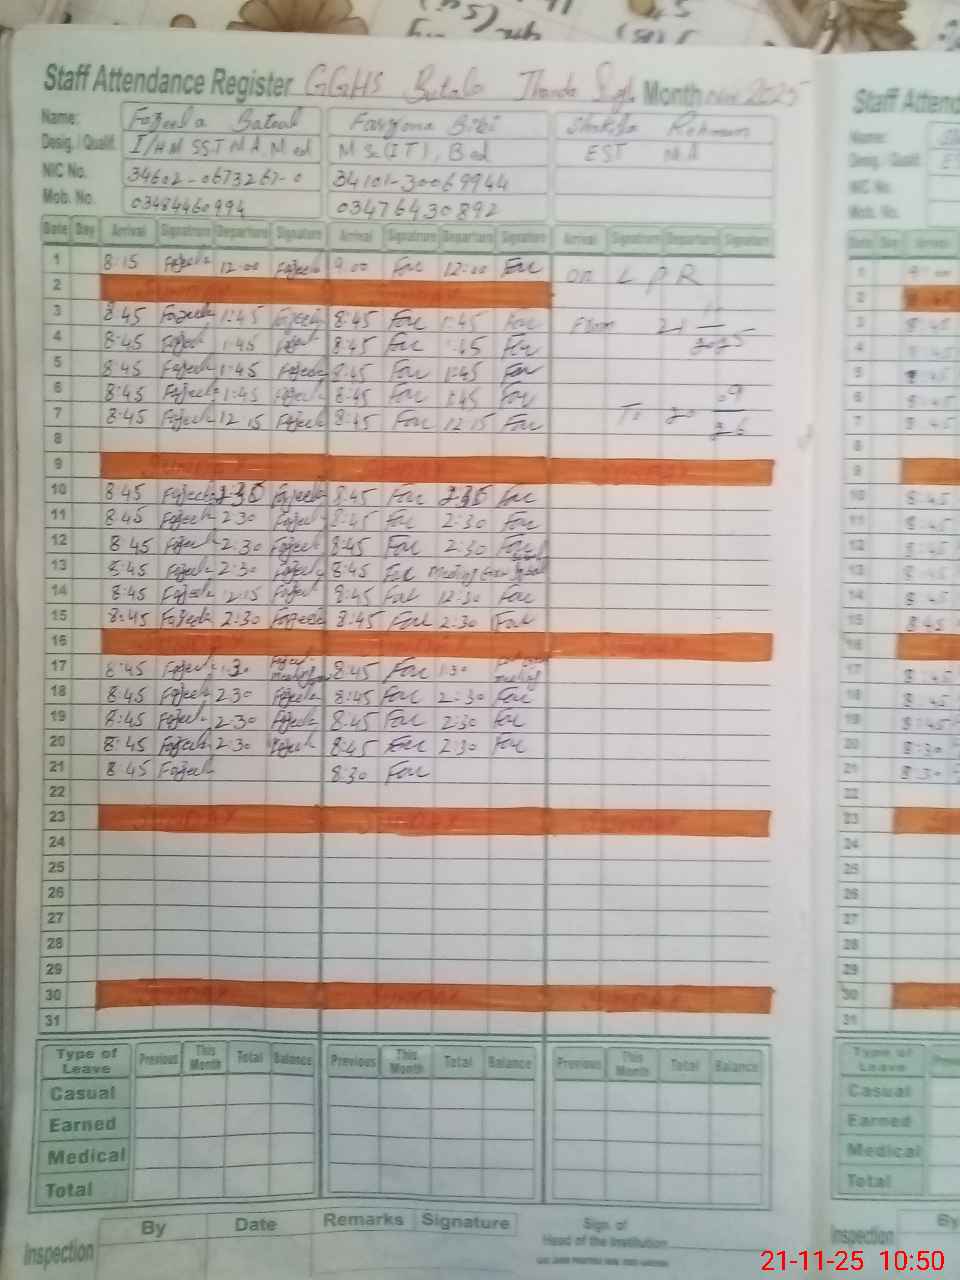 Staff Attendance Register GGHS Butala Jhanda Sngh Month Nov 2025
Name: Fazeela Batool Farzana Bibi Shakila Rehman
Desig. / Qualif. I/HM SST M.A, M.ed M Sc(IT), B.ed EST M.A
NIC No. 34602-0673267-0 34101-30069944
Mob. No. 03484460994 03476430892
Date Day Arrival Signature Departure Signature Arrival Signature Departure Signature Arrival Signature Departure Signature
1 8:15 Fazeela 12:00 Fazeela 9:00 Far 12:00 Far on L P R
2 Sunday Sunday
3 8:45 Fazeela 1:45 Fazeela 8:45 Far 1:45 Far From 21
4 8:45 Fazeela 1:45 8:45 Far 1:45 Far 2025
5 8:45 Fazeela 1:45 Fazeela 8:45 Far 1:45 Far
6 8:45 Fazeela 1:45 Fazeela 8:45 Far 1:45 Far 09
7 8:45 Fazeela 12:15 Fazeela 8:45 Far 12:15 Far To 20
8 26
9 Sunday Sunday Sunday
10 8:45 Fazeela Fazeela 8:45 Far Far
11 8:45 Fazeela 2:30 Fazeela 8:45 Far 2:30 Far
12 8:45 Fazeela 2:30 Fazeela 8:45 Far 2:30
13 8:45 Fazeela 2:30 Fazeela 8:45 Far Meeting
14 8:45 Fazeela 12:15 Fazeela 8:45 Far 12:30 Far
15 8:45 Fazeela 2:30 Fazeela 8:45 Far 2:30 Far
16 Sunday Sunday Sunday
17 8:45 Fazeela 1:30 meeting 8:45 Far 1:30 meeting
18 8:45 Fazeela 2:30 Fazeela 8:45 Far 2:30 Far
19 8:45 Fazeela 2:30 Fazeela 8:45 Far 2:30 Far
20 8:45 Fazeela 2:30 Fazeela 8:45 Far 2:30 Far
21 8:45 Fazeela 8:30 Far
22
23 Sunday Sunday Sunday
24
25
26
27
28
29
30 Sunday Sunday Sunday
31
Type of Leave Previous This Month Total Balance Previous This Month Total Balance Previous This Month Total Balance
Casual
Earned
Medical
Total
Inspection By Date Remarks Signature Sign. of Head of the Institution
Staff Attend
Name:
Desig. / Qualif.
NIC No.
Mob. No.
Date Day Arrival
1
2
3 8:45
4 8:45
5 8:45
6 8:45
7 8:45
8
9
10 8:45
11 8:45
12 8:45
13 8:45
14 8:45
15 8:45
16
17 8:45
18 8:45
19 8:45
20 8:30
21 8:30
22
23
24
25
26
27
28
29
30
31
Type of Leave
Casual
Earned
Medical
Total
Inspection By
21-11-25 10:50